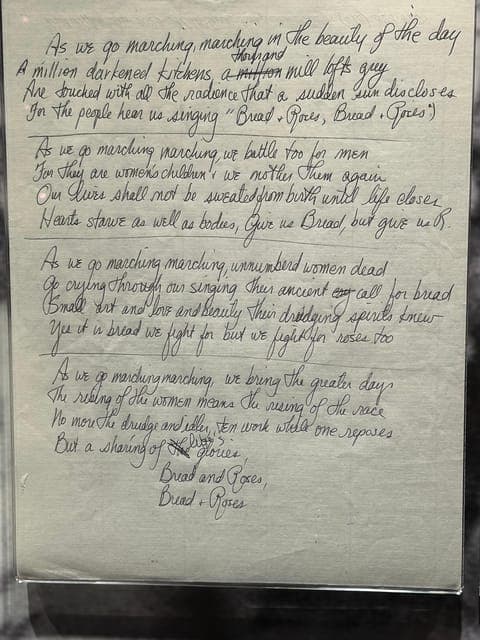 As we go marching, marching in the beauty of the day
thousand
A million darkened kitchens, a million mill lofts grey
Are touched with all the radience that a sudden sun discloses
For the people hear us singing "Bread + Roses, Bread + Roses")
As we go marching marching, we battle too for men
For they are women's children + we mother them again
Our lives shall not be sweated from birth until life closes
Hearts starve as well as bodies, Give us Bread, but give us R.
As we go marching marching, unnumberd women dead
Go crying through our singing their ancient call for bread
Small art and love and beauty their drudging spirits knew
Yes it is bread we fight for but we fight for roses too
As we go marching marching, we bring the greater days
The rising of the women means the rising of the race
No more the drudge and idler, ten work while one reposes
But a sharing of life's glories,
Bread and Roses,
Bread + Roses